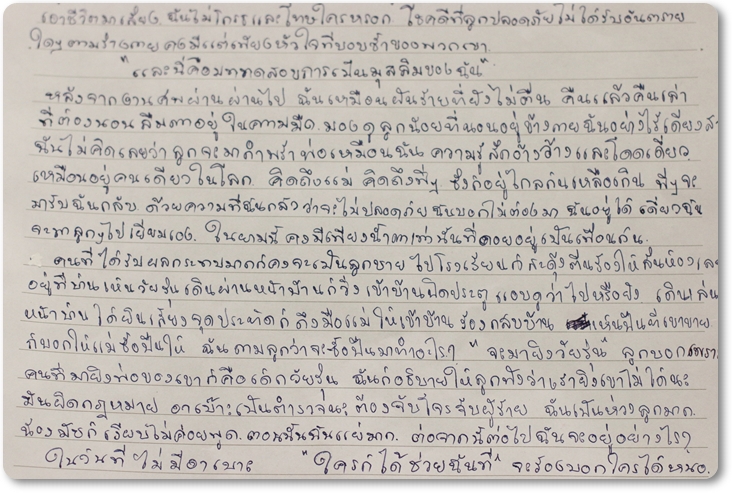 เอาชีวิตมาเสี่ยง ฉันไม่โกรธและโทษใครหรอก โชคดีที่ลูกปลอดภัยไม่ได้รับอันตราย
ใดๆตามร่างกายคงมีแต่เพียงหัวใจที่บอบช้ำของพวกเขา
"และนี่คือบททดสอบการเป็นมุสลิมของฉัน"
หลังจากงานศพผ่านผ่านไป ฉันเหมือนฝันร้ายที่ยังไม่ตื่น คืนแล้วคืนเล่า
ที่ต้องนอนลืมตาอยู่ในความมืด. มองดูลูกน้อยที่นอนอยู่ข้างกายฉันอย่างไร้เดียงสา
ฉันไม่คิดเลยว่าลูกจะมากำพร้าพ่อเหมือนฉัน ความรู้สึกอ้างว้างและโดดเดี่ยว
เหมือนอยู่คนเดียวในโลก. คิดถึงแม่ คิดถึงพี่ๆ ซึ่งก็อยู่ไกลกันเหลือเกิน พี่ๆจะ
มารับฉันกลับ ด้วยความที่ฉันกลัวว่าจะไม่ปลอดภัยฉันบอกไม่ต้องมา ฉันอยู่ได้ เดี๋ยวฉัน
จะพาลูกๆไปเยี่ยมเอง. ในยามนี้คงมีเพียงน้ำตาเท่านั้นที่คอยอยู่เป็นเพื่อนกัน.
คนที่ได้รับผลกระทบมากก็คงจะเป็นลูกชาย ไปโรงเรียนก็สะดุ้งตื่นร้องไห้ลั่นห้องและ
อยู่ที่บ้านเห็นวัยรุ่นเดินผ่านหน้าบ้านก็วิ่งเข้าบ้านปิดประตู แอบดูว่าไปหรือยัง เดินเล่น
หน้าบ้าน ได้ยินเสียงจุดประทัดก็ดึงมือแม่ให้เข้าบ้าน ร้องกลับบ้าน เห็นปืนที่เขาขาย
ก็บอกให้แม่ซื้อปืนให้ ฉันถามลูกว่าจะซื้อปืนมาทำอะไร? "จะมายิงวัยรุ่น" ลูกบอกเพราะ
คนที่มายิงพ่อของเขาก็คือเด็กวัยรุ่น ฉันก็อธิบายให้ลูกฟังว่าเรายิงเขาไม่ได้นะ
มันผิดกฎหมาย อาเบ๊าะเป็นตำรวจนะ ต้องจับโจรจับผู้ร้าย ฉันเป็นห่วงลูกมาก.
น้องมัซก็เงียบไม่ค่อยพูด. ตอนนั้นฉันแย่มาก. ต่อจากนี้ต่อไปฉันจะอยู่อย่างไร?
ในวันที่ ไม่มีอาเบาะ "ใครก็ได้ช่วยฉันที" จะร้องบอกใครได้หนอ.